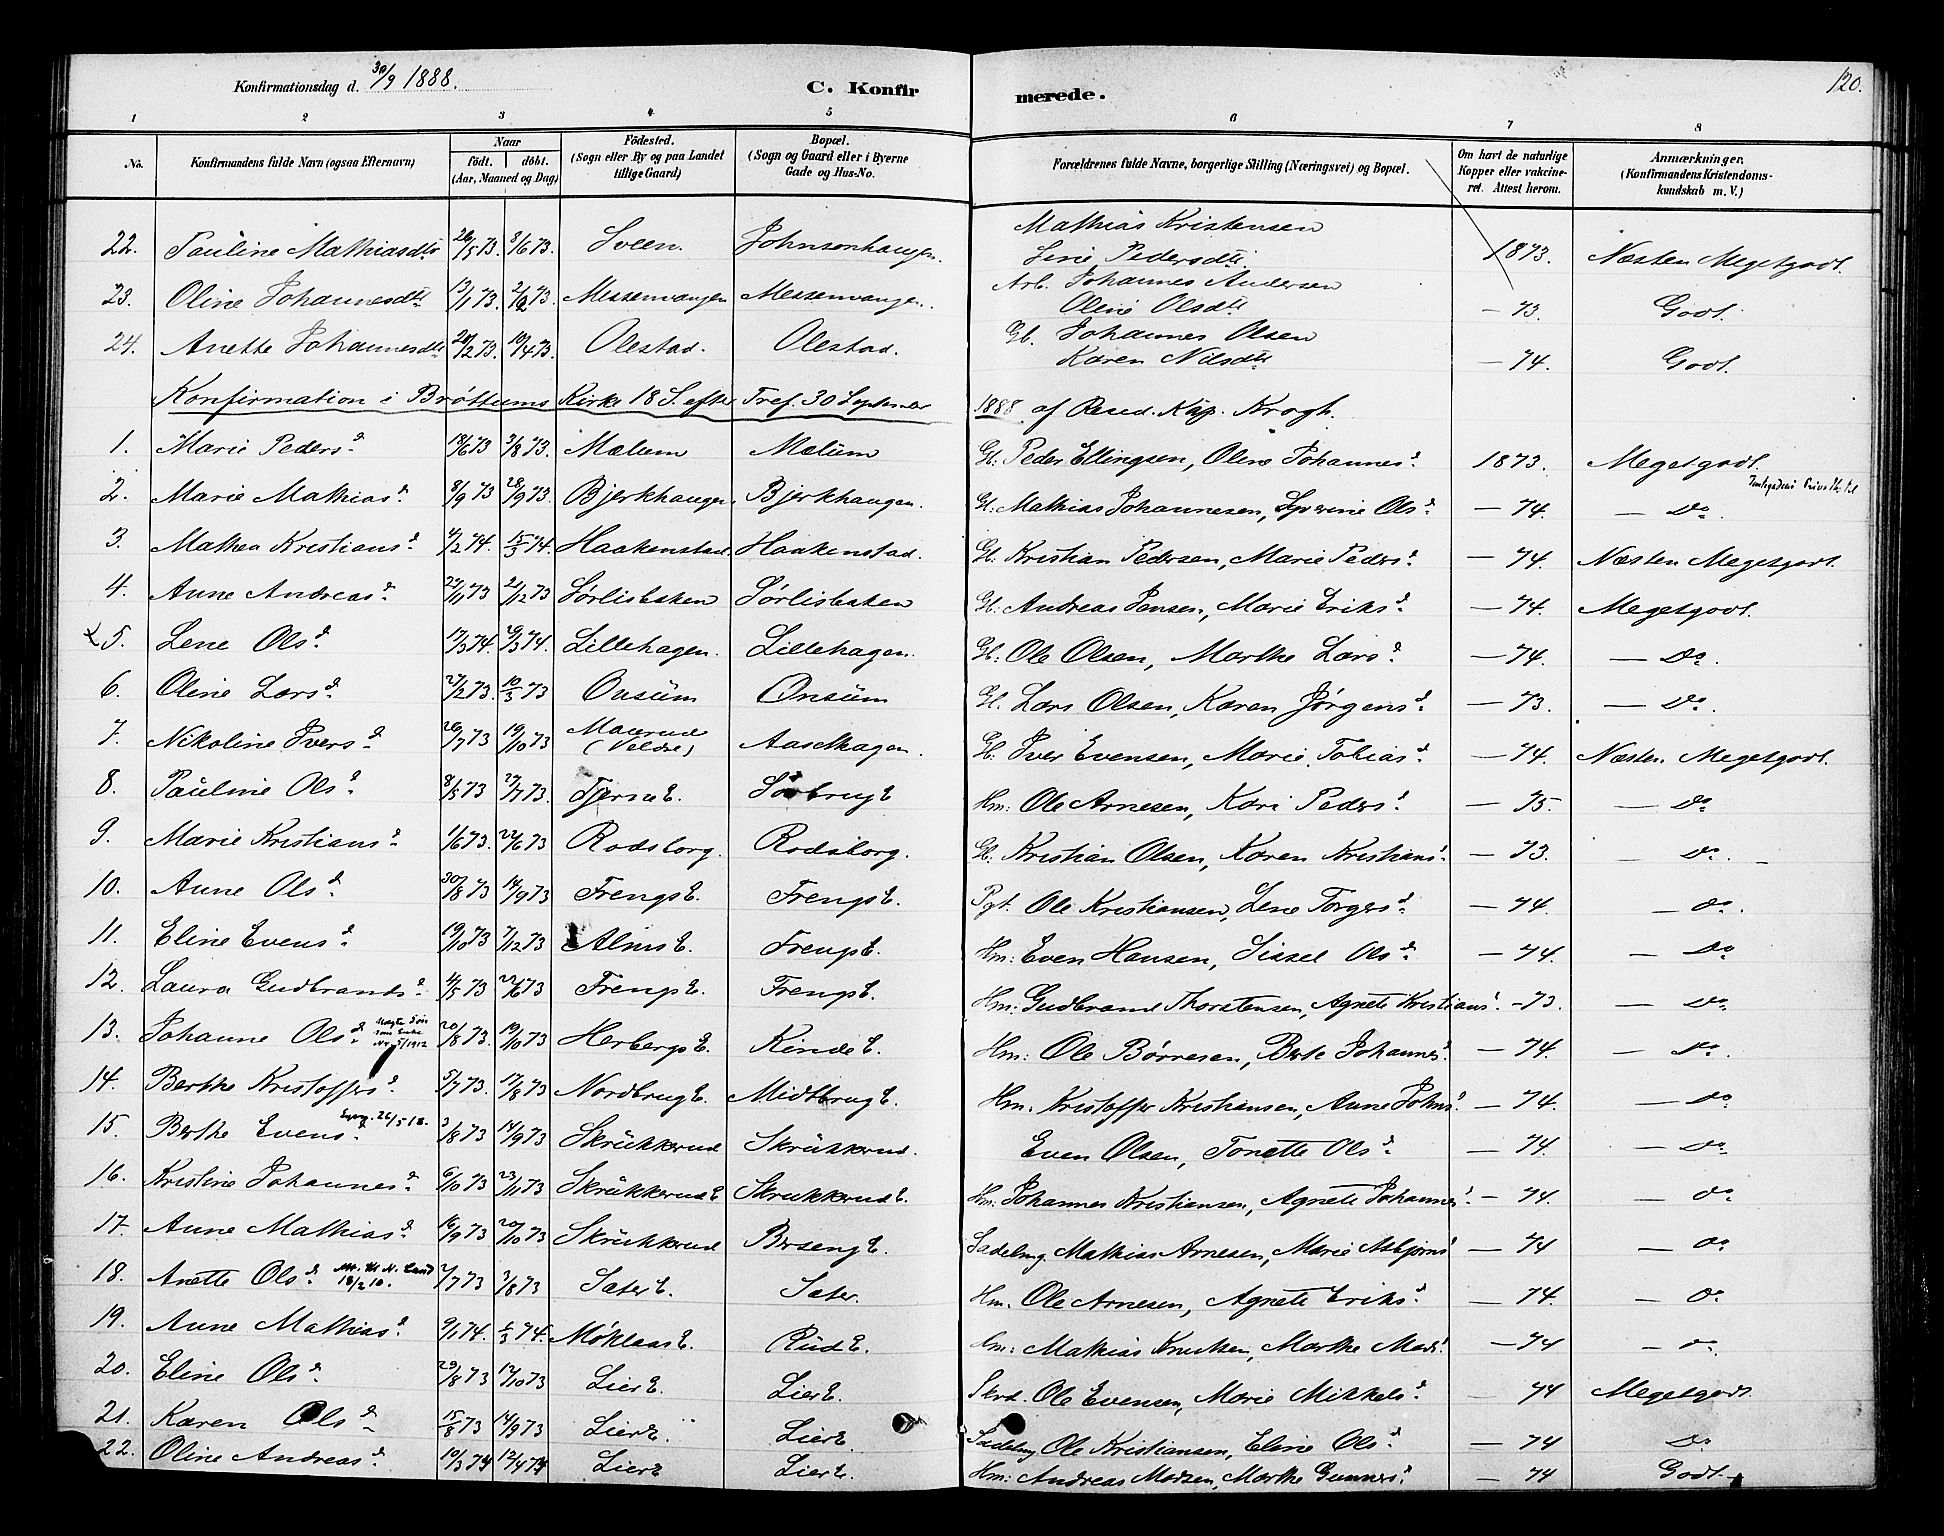 Konfirmationsdag d. 30/9 1888. C. Konfirmerede. 120.
1 2 3 4 5 6 7 8
No. Konfirmandens fulde Navn (ogsaa Efternavn) Naar födt. döbt. (Aar, Maaned og Dag) Födested. (Sogn eller By og paa Landet tillige Gaard) Bopæl. (Sogn og Gaard eller i Byerne Gade og Hus-No. Forældrenes fulde Navne, borgerlige Stilling (Næringsvei) og Bopæl. Om havt de naturlige Kopper eller vakcineret. Attest herom. Anmærkninger. (Konfirmandens Kristendomskundskab m. V.)
22. Pauline Mathiasdtr 26/5 73. 3/6 73. Sveen. Johnsenhaugen. Mathias Kristensen Line Pedersdtr 1873. Næsten Megetgodt.
23. Oline Johannesdtr 13/1 73. 2/2 73. Messenvangen Messenvangen. Arb. Johannes Andersen Oline Olsdtr — 73. Godt.
24. Anette Johannesdtr 20/2 73. 19/4 73. Olestad. Olestad. Gb. Johannes Olsen Karen Nilsdtr — 74. Godt.
Konfirmation i Brøttums Kirke 18 S. efter Tref. 30 September 1888 af Resd. Kap. Krogh.
1. Marie Peders d. 18/6 73 3/8 73. Mælum Mælum Gb: Peder Ellingsen, Oline Johannes d. 1873. Megetgodt.
2. Marie Mathias d. 8/9 73 28/9 73. Bjerkhaugen. Bjerkhaugen. Gb. Mathias Johannesen, Syverine Ols d. — 74. — Do.
3. Mathea Kristians d. 4/2 74. 15/3 74. Haakenstad. Haakenstad. Gb. Kristian Pedersen, Marie Peders d. — 74. Næsten Megetgodt.
4. Anne Andreas d. 27/11 73 21/12 73 Sørlisbaken Sørlisbaken Gb: Andreas Jensen, Marie Eriks d. — 74. Megetgodt.
5. Lene Ols d. 17/3 74. 29/3 74. Lillehagen. Lillehagen. Gb: Ole Olsen, Marthe Lars d. — 74. — Do.
6. Oline Lars d. 27/2 73. 10/3 73 Onsum Onsum Gb. Lars Olsen, Karen Jørgens d. — 73. — Do.
7. Nikoline Ivers d. 26/7 73 19/10 73 Maurud (Veldre) Aasehagen. Gb: Iver Evensen, Marie Tobias d. — 74. Næsten Megetgodt.
8. Pauline Ols d. 8/5 73 27/7 73. Tjerne E. Sørbrug E Hm: Ole Arnesen, Kari Peders d. — 75. — Do
9. Marie Kristians d. 1/6 73. 22/6 73 Rodsborg. Rodsborg. Gb. Kristian Olsen, Karen Kristians d. — 73. — Do.
10. Anne Ols d. 30/8 73 14/9 73 Frengs E. Frengs E. Pgt. Ole Kristiansen, Lene Torgers d. — 74. — Do.
11. Eline Evens d. 19/10 73 7/12 73 Alms E. Frengs E. Hm: Even Hansen, Sissel Ols d. — 74. — Do
12. Laura Gudbrands d. 4/5 73 22/6 73 Frengs E. Frengs E. Hm: Gudbrand Thorstensen, Agnete Kristians d. — 73. — Do.
13. Johanne Ols d. 20/8 73. 19/10 73 Herbergs E. Kinde E. Hm: Ole Børresen, Berte Johannes d. — 74. — Do.
14. Berthe Kristoffers d. 5/7 73. 17/8 73 Nordbrug E. Midtbrug E. Hm. Kristoffer Kristiansen, Anne Johns d. — 74. — Do
15. Berthe Evens d. 3/8 73 14/9 73 Skrukkerud Skrukkerud. Even Olsen, Tonette Ols d. — 74. — Do.
16. Kristine Johannes d. 6/10 73 23/11 73 Skrukkerud E Skrukkerud E. Hm: Johannes Kristiansen, Agnete Johannes d. — 74. — Do
17. Anne Mathias d. 16/9 73 20/10 73 Skrukkerud Berseng E. Sadelmg. Mathias Arnesen, Marie Asbjørns d. — 74 — Do
18. Anette Ols d. 2/7 73 3/8 73 Sater E. Sater. Hm. Ole Arnesen, Agnete Eriks d. — 74. — Do
19. Anne Mathias d. 9/1 74. /3 74. Møklaas E. Rud E. Hm: Mathias Knutsen, Marthe Mads d. — 74 — Do.
20. Eline Ols d. 29/8 73 12/10 73 Lier E. Lier E. Skrd. Ole Evensen, Marie Mikkels d. — 74 Megetgodt
21. Karen Ols d. 15/8 73 14/9 73 Lier E. Lier E. Sadelmg Ole Kristiansen, Eline Ols d. — 74 Do
22. Oline Andreas d. 10/3 74 12/4 74 Lier E Lier E. Hm: Andreas Madsen, Marthe Gunners d. — 74 Godt.